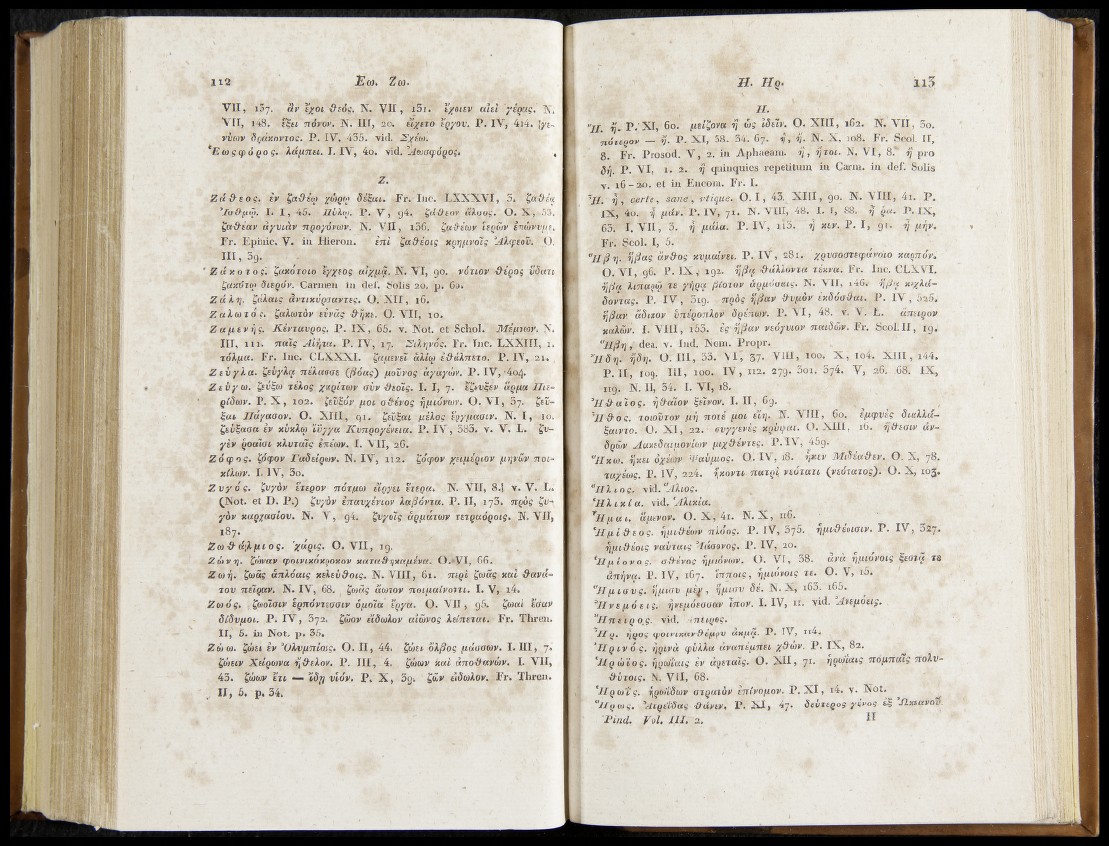 112 Εω. Ζω.
VII, 137. ἂν ἔχοι θεός. N. VII, 131. ἔχοιεν αἰεὶ γέρας. N.
VII, 148. ἕξει πόνον. N. III, 20. εἴχετο ἔργου. P. IV, 414. γε-
νύων δράκοντος. P. IV, 435. vid. Σχέω.
Ἑωςφόρος. λάμπει. I. IV, 40. vid. Ἀωσφόρος.
Z.
Ζάθεος. ἐν ζαθέῳ χώρῳ δέξαι. Fr. Inc. LXXXVI, 3. ζαθέᾳ
Ἰσθμῷ. I. I, 45. Πύλῳ. P. V, 94. ζάθεον ἄλσος. O. X, 55.
ζαθέαν ἀγυιὰν προγόνων. N. VII, 136. ζαθέων ἱερῶν ἐπώνυμε.
Fr. Epinic. V. in Hieron. ἐπὶ ζαθέοις κρημνοῖς Ἀλφεοῦ. O.
III, 39.
Ζάκοτος. ζακότοιο ἔγχεος αἰχμᾷ. N. VI, 90. νότιον θέρος ὕδατι
ζακότῳ διερόν. Carmen in def. Solis 20. p. 69.
Ζάλη. ζάλαις ἀντικύρσαντες. O. XII, 16.
Ζαλωτός. ζαλωτὸν εὐνᾶς θῆκε. O. VII, 10.
Ζαμενής. Κένταυρος. P. IX, 65. v. Not. et Schol. Μέμνων. N.
III, 111. παῖς Αἰήτα. P. IV, 17. Σιληνός. Fr. Inc. LXXIII, 1.
τόλμα. Fr. Inc. CLXXXI. ζαμενεῖ ἁλίῳ ἐθάλπετο. P. IV, 21.
Ζεύγλα. ζεύγλᾳ πέλασσε (βόας) μοῦνος ἀγαγών. P. IV, 404.
Ζεύγω. ζεύξω τέλος χαρίτων σὺν θεοῖς. I. I, 7. ἔζευξεν ἅρμα Πιε-
ρίδων. P. X, 102. ζεῦξόν μοι σθένος ἡμιόνων. O. VI, 37. ζεῦ-
ξαι Πάγασον. O. XIII, 91. ζεῦξαι μέλος ἔργμασιν. N. I, 10.
ζεύξασα ἐν κύκλῳ ἴϋγγα Κυπρογένεια. P. IV, 383. v. V. L. ζυ-
γὲν ῥοαῖσι κλυταῖς ἐπέων. I. VII, 26.
Ζόφος. ζόφον Γαδείρων. N. IV, 112. ζόφον χειμέριον μηνῶν ποι-
κίλων. I. IV, 30.
Ζυγός. ζυγὸν ἕτερον πότμῳ εἴργει ἕτερα. N. VII, 8. v. V. L.
(Not. et D. P.) ζυγὸν ἐπαυχένιον λαβόντα. P. II, 173. πρὸς ζυ-
γὸν καρχασίου. N. V, 94. ζυγοῖς ἁρμάτων τετραόροις. N. VII,
187.
Ζωθάλμιος. χάρις. O. VII, 19.
Ζώνη. ζώναν φοινικόκροκον καταθηκαμένα. O. VI, 66.
Ζωή. ζωᾶς ἁπλόαις κελεύθοις. N. VIII, 61. περὶ ζωᾶς καὶ θανά-
του πεῖραν. N. IV, 68. ζωᾶς ἄωτον ποιμαίνοντι. I. V, 14.
Ζωός. ζωοῖσιν ἑρπόντεσσιν ὁμοῖα ἔργα. O. VII, 95. ζωαὶ ἔσαν
δίδυμοι. P. IV, 372. ζῶον εἴδωλον αἰῶνος λείπεται. Fr. Thren.
II, 5. in Not. p. 35.
Ζώω. ζώει ἐν Ὀλυμπίοις. O. II, 44. ζώει ὄλβος μάσσων. I. III, 7.
ζώειν Χείρωνα ἤθελον. P. III, 4. ζώων καὶ ἀποθανών. I. VII,
43. ζώων ἔτι — ἴδῃ υἱόν. P. X, 39. ζῶν εἴδωλον. Fr. Thren.
II, 5. p. 34.
Η. Ηρ. 113
H.
Ἤ. ἤ. P. XI, 60. μείζονα ἢ ὡς ἰδεῖν. O. XIII, 162. N. VII, 30.
πότερον — ἤ. P. XI, 38. 34. 67. ἤ, ἤ. N. X, 108. Fr. Scol. II,
8. Fr. Prosod. V, 2. in Aphaeam. ἤ, ἤτοι. N. VI, 8. ἢ pro
δή. P. VI, 1. 2. ἢ quinquies repetitum in Carm. in def. Solis
v. 16-20. et in Encom. Fr. I.
Ἦ. ἦ, certe, sane, utique. O. I, 43. XIII, 90. N. VIII, 41. P.
IX, 40. ἦ μάν. P. IV, 71. N. VIII, 48. I. I, 88. ἦ ῥα. P. IX,
63. I. VII, 3. ἦ μάλα. P. IV, 113. ἦ κεν. P. I, 91. ἦ μήν.
Fr. Scol. I, 5.
Ἥβη. ἥβας ἄνθος κυμαίνει. P. IV, 281. χρυσοστεφάνοιο καρπόν.
O. VI, 96. P. IX, 192. ἥβᾳ θάλλοντα τέκνα. Fr. Inc. CLXVI.
ἥβᾳ λιπαρῷ τε γήραϊ βίοτον ἁρμόσαις. N. VII, 146. ἥβᾳ κεχλά-
δοντας. P. IV, 319. πρὸς ἥβαν θυμὸν ἐκδόσθαι. P. IV, 525.
ἥβαν ἄδικον ὑπέροπλον δρέπων. P. VI, 48. v. V. L. ἄπειρον
καλῶν. I. VIII, 153. ἐς ἥβαν νεόγυιον παιδῶν. Fr. Scol. II, 19.
Ἥβη, dea. v. Ind. Nom. Propr.
Ἤδη. ἤδη. O. III, 33. VI, 37. VIII, 100. X, 104. XIII, 144.
P. II, 109. III, 190. IV, 112. 279. 301. 574. V, 26. 68. IX,
119. N. II, 34. I. VI, 18.
Ἠθαῖος. ἠθαῖον ξεῖνον. I. II, 69.
Ἦθος. τοιοῦτον μή ποτέ μοι εἴη. N. VIII, 60. ἐμφυὲς διαλλά-
ξαιντο. O. XI, 22. συγγενὲς κρύψαι. O. XIII, 16. ἤθεσιν ἀν-
δρῶν Λακεδαιμονίων μιχθέντες. P. IV, 459.
Ἥκω. ἥκει ὀχέων Ψαύμιος. O. IV, 18. ἧκεν Μιδέαθεν. O. X, 78.
ταχέως. P. IV, 224. ἥκοντι πατρὶ νεότατι (νεότατος). O. X, 103.
Ἥλιος. vid. Ἅλιος.
Ἡλικία. vid. Ἁλικία.
Ἧμαι. ἅμενον. O. X, 41. N. X, 116.
Ἡμίθεος. ἡμιθέων πλόος. P. IV, 375. ἡμιθέοισιν. P. IV, 327.
ἡμιθέοις ναύταις Ἰάσονος. P. IV, 20.
Ἡμίονος. σθένος ἡμιόνων. O. VI, 38. ἀνὰ ἡμιόνοις ξεστᾷ τε
ἀπήνᾳ. P. IV, 167. ἵπποις, ἡμιόνοις τε. O. V, 15.
Ἥμισυς. ἥμισυ μέν, ἥμισυ δέ. N. X, 163. 165.
Ἠνεμόεις. ἠνεμόεσσαν ἶπον. I. IV, 11. vid. Ἀνεμόεις.
Ἤπειρος. vid. Ἄπειρος.
Ἦρ. ἦρος φοινικανθέμου ἀκμᾷ. P. IV, 114.
Ἠρινός. ἠρινὰ φύλλα ἀναπέμπει χθών. P. IX, 82.
Ἡρώϊος. ἡρωΐαις ἐν ἀρεταῖς. O. XII, 71. ἡρωΐαις πομπαῖς πολυ-
θύτοις. N. VII, 68.
Ἡρωΐς. ἡρωΐδων στρατὸν ἐπίνομον. P. XI, 14. v. Not.
Ἥρως. Ἀτρείδας θάνεν. P. XI, 47. δεύτερος γένος ἐξ Ὠκεανοῦ
Pind. Vol. III. 2. H